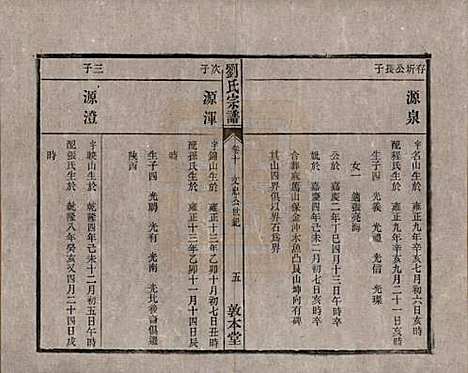 存圻公長子
源泉
字名山生於 雍正九年辛亥七月初六日亥時
配程氏生於 雍正九年辛亥九月二十一日亥時
生子四 光義 光禮 光信 光璨
女一 適張亮海
公於 嘉慶二年丁巳四月十三日午時卒
氏於 嘉慶四年己未二月初七日亥時卒
合葬歲萬山保金沖水魚凸艮山坤向有碑
其山四界俱以界石爲界
劉氏宗譜
卷十
文紀公世紀
五
敦本堂
次子
源渾
字錦山生於 雍正十三年乙卯十月初七日戌時
配張氏生於 雍正十三年乙卯十一月十四日戌時
生子四 光聘 光有 光南 光比後諱俱遷
陝西
三子
源澄
字映山生於 乾隆四年己未十二月初五日午時
配張氏生於 乾隆八年癸亥又四月二十四日戌
時